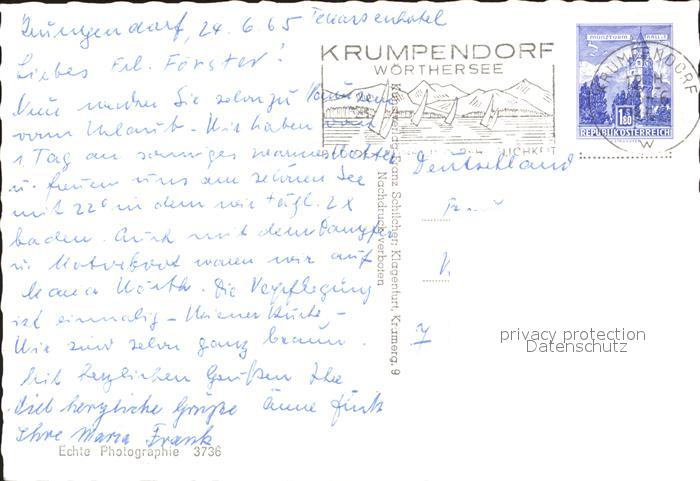 Krumpendorf, 24.6.65 Terrassenhotel
Liebes Frl. Förster!
Nun werden Sie schon zu Hause sein
vom Urlaub - Wir haben vom
1 Tag an sonniges warmes Wetter
u. freuen uns am schönen See
mit 22° in dem wir tägl. 2x
baden. Auch mit dem Dampfer
u. Motorboot waren wir auf
Maria Wörth. Die Verpflegung
ist einmalig - Wiener Küche -
Wir sind schon ganz braun.
Mit herzlichen Grüßen Ihe
Viel herzliche Grüße Anne Funk
Ihre Maria Frank
Echte Photographie 3736
Franz Schilcher, Klagenfurt, Kramerg. 9
Nachdruck verboten
KRUMPENDORF
WÖRTHERSEE
LICHKEIT
MÜNZTURM HALL
1.80
REPUBLIK ÖSTERREICH
KRUMPENDORF
W
Deutschland
privacy protection
Datenschutz